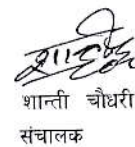 शान्ती चौधरी
संचालक